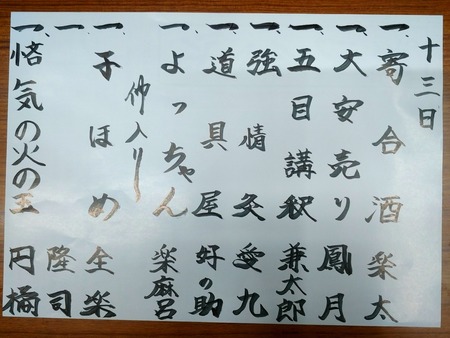 十三日
一、寄合酒 楽太
一、大安売り 鳳月
一、五目講釈 兼太郎
一、強情灸 愛九
一、道具屋 好の助
一、よっちゃん 楽麻呂
仲入り
一、子ほめ 全楽
一、 隆司
一、悋気の火の玉 円橘